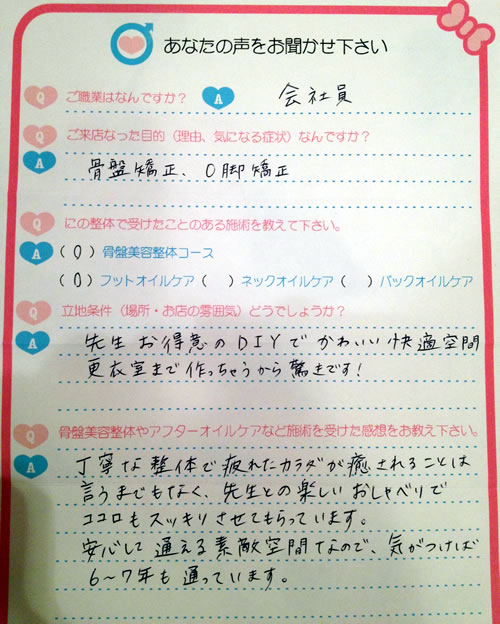 あなたの声をお聞かせ下さい
Q ご職業はなんですか? A 会社員
Q ご来店なった目的(理由、気になる症状)なんですか?
A 骨盤矯正、O脚矯正
Q にの整体で受けたことのある施術を教えて下さい。
A (O)骨盤美容整体コース
(O)フットオイルケア( )ネックオイルケア( )バックオイルケア
Q 立地条件(場所・お店の雰囲気)どうでしょうか?
A 先生お得意のDIYでかわいい快適空間
更衣室まで作っちゃうから驚きです!
Q 骨盤美容整体やアフターオイルケアなど施術を受けた感想をお教え下さい。
A 丁寧な整体で疲れたカラダが癒されることは
言うまでもなく、先生との楽しいおしゃべりで
ココロもスッキリさせてもらっています。
安心して通える素敵空間なので、気がつけば
6~7年も通っています。